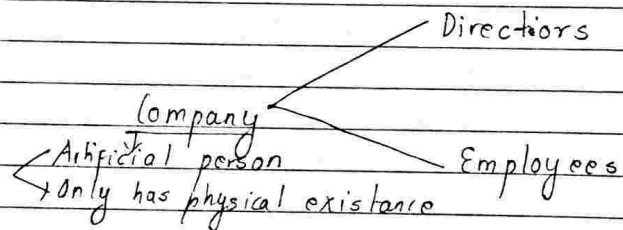 Directiors
Company
Artificial person
Employees
Only has physical existance